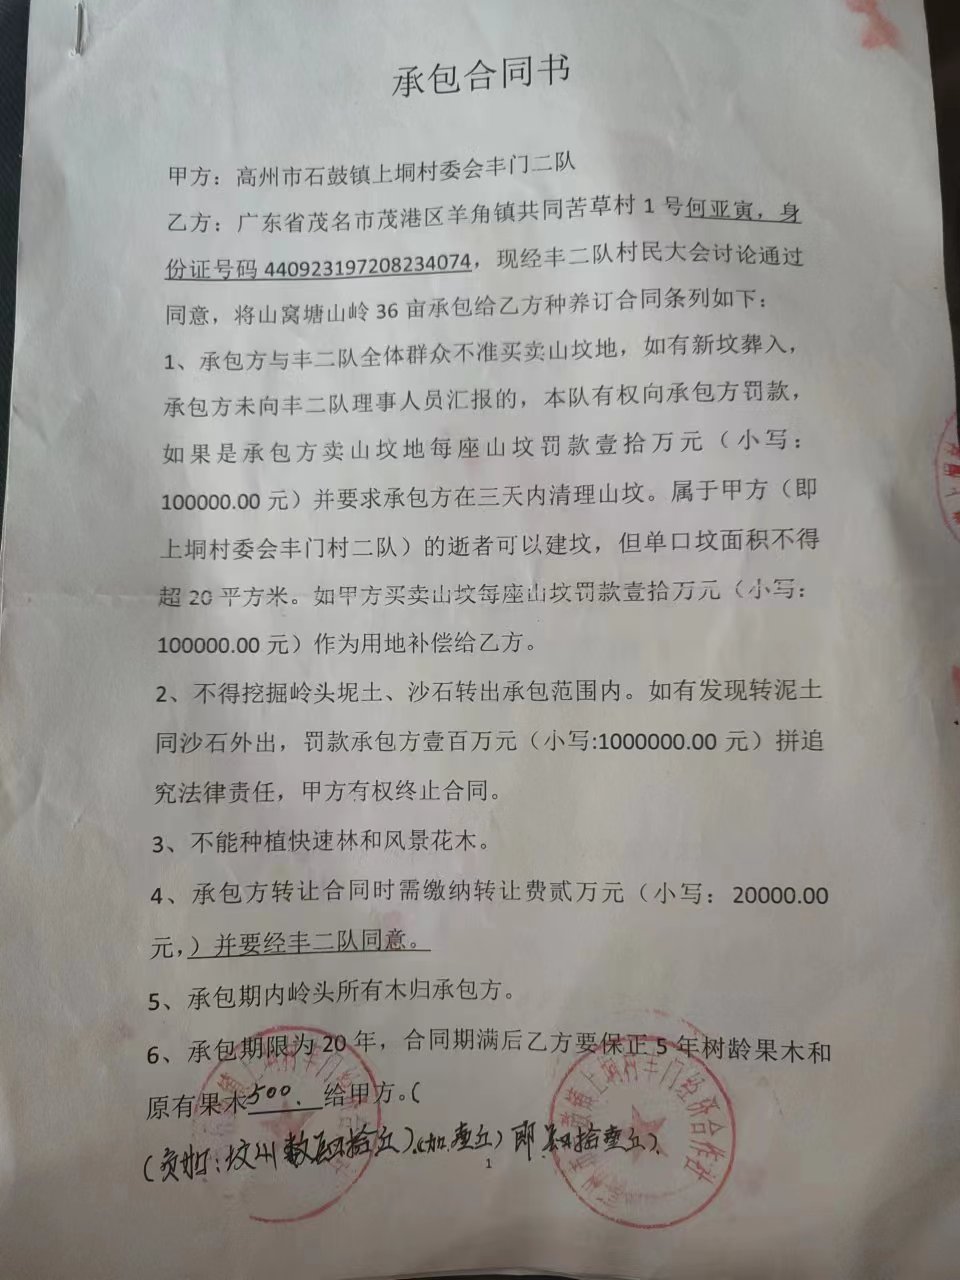 承包合同书
甲方：高州市石鼓镇上垌村委会丰门二队
乙方：广东省茂名市茂港区羊角镇共同苦草村 1 号何亚寅，身
份证号码 440923197208234074，现经丰二队村民大会讨论通过
同意，将山窝塘山岭 36 亩承包给乙方种养订合同条列如下：
1、承包方与丰二队全体群众不准买卖山坟地，如有新坟葬入，
承包方未向丰二队理事人员汇报的，本队有权向承包方罚款，
如果是承包方卖山坟地每座山坟罚款壹拾万元（小写：
100000.00 元）并要求承包方在三天内清理山坟。属于甲方（即
上垌村委会丰门村二队）的逝者可以建坟，但单口坟面积不得
超 20 平方米。如甲方买卖山坟每座山坟罚款壹拾万元（小写：
100000.00 元）作为用地补偿给乙方。
2、不得挖掘岭头坭土、沙石转出承包范围内。如有发现转泥土
同沙石外出，罚款承包方壹百万元（小写:1000000.00 元）拼追
究法律责任，甲方有权终止合同。
3、不能种植快速林和风景花木。
4、承包方转让合同时需缴纳转让费贰万元（小写：20000.00
元,）并要经丰二队同意。
5、承包期内岭头所有木归承包方。
6、承包期限为 20 年，合同期满后乙方要保正 5 年树龄果木和
原有果木500.给甲方。(
坟
1
上垌村丰门经济合作社